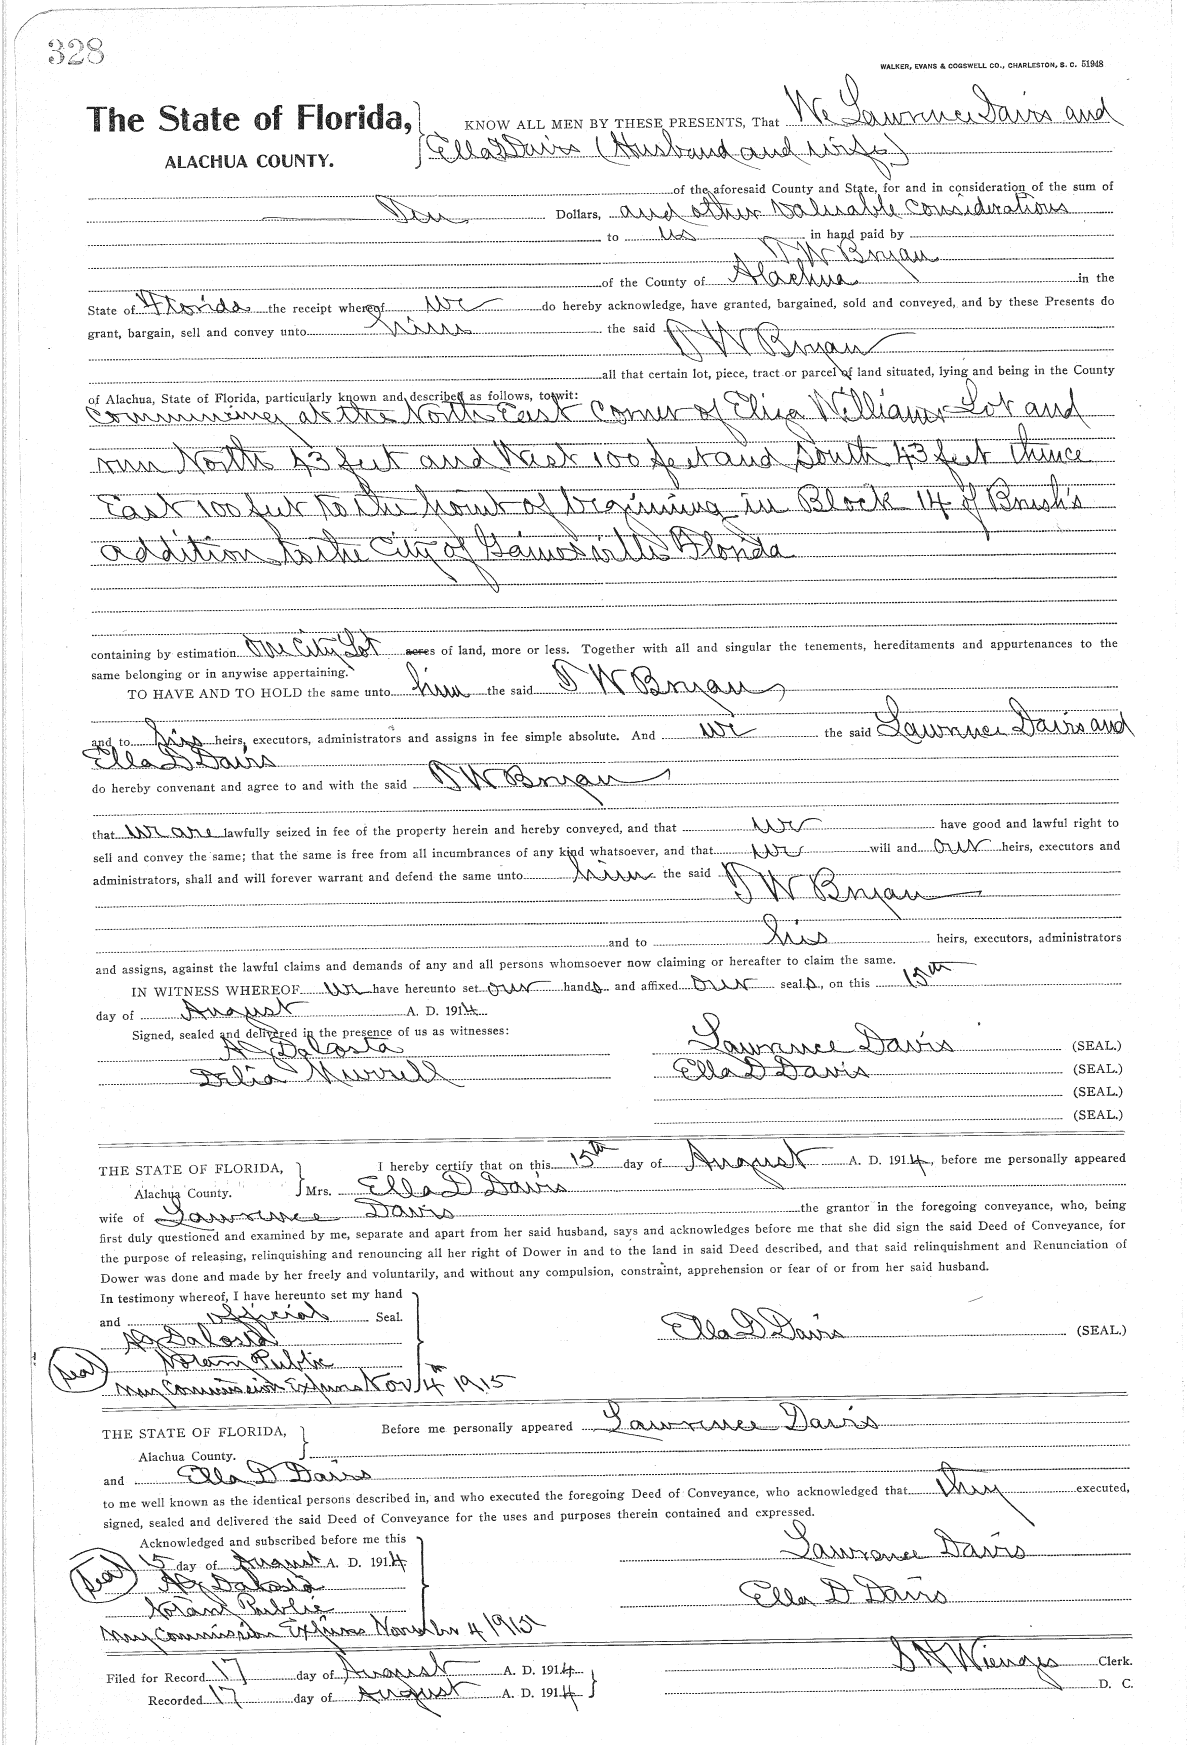 328
WALKER, EVANS & COGSWELL CO., CHARLESTON, S. C. 51948
The State of Florida,
ALACHUA COUNTY.
KNOW ALL MEN BY THESE PRESENTS, That We Lawrence Davis and
Ella D Davis (Husband and wife)
of the aforesaid County and State, for and in consideration of the sum of
Ten Dollars, and other valuable considerations
to us in hand paid by
W Bryan
of the County of Alachua in the
State of Florida the receipt whereof we do hereby acknowledge, have granted, bargained, sold and conveyed, and by these Presents do
grant, bargain, sell and convey unto him the said W Bryan
all that certain lot, piece, tract or parcel of land situated, lying and being in the County
of Alachua, State of Florida, particularly known and described as follows, to wit:
Commencing at the North East Corner of Eliza Williams Lot and
run North 43 feet and West 100 feet and South 43 feet thence
East 100 feet to the point of beginning in Block 14 of Brush's
addition to the City of Gainesville Florida
containing by estimation One City Lot acres of land, more or less. Together with all and singular the tenements, hereditaments and appurtenances to the
same belonging or in anywise appertaining.
TO HAVE AND TO HOLD the same unto him the said W Bryan
and to his heirs, executors, administrators and assigns in fee simple absolute. And we the said Lawrence Davis and
Ella D Davis
do hereby convenant and agree to and with the said W Bryan
that we are lawfully seized in fee of the property herein and hereby conveyed, and that we have good and lawful right to
sell and convey the same; that the same is free from all incumbrances of any kind whatsoever, and that we will and our heirs, executors and
administrators, shall and will forever warrant and defend the same unto him the said W Bryan
and to his heirs, executors, administrators
and assigns, against the lawful claims and demands of any and all persons whomsoever now claiming or hereafter to claim the same.
IN WITNESS WHEREOF we have hereunto set our hands and affixed our seals, on this 15th
day of August A. D. 1914
Signed, sealed and delivered in the presence of us as witnesses:
DaCosta Lawrence Davis (SEAL.)
Delia Murrell Ella D Davis (SEAL.)
(SEAL.)
(SEAL.)
THE STATE OF FLORIDA, I hereby certify that on this 15th day of August A. D. 1914, before me personally appeared
Alachua County. Mrs. Ella D Davis
wife of Lawrence Davis the grantor in the foregoing conveyance, who, being
first duly questioned and examined by me, separate and apart from her said husband, says and acknowledges before me that she did sign the said Deed of Conveyance, for
the purpose of releasing, relinquishing and renouncing all her right of Dower in and to the land in said Deed described, and that said relinquishment and Renunciation of
Dower was done and made by her freely and voluntarily, and without any compulsion, constraint, apprehension or fear of or from her said husband.
In testimony whereof, I have hereunto set my hand
and official Seal.
DaCosta Ella D Davis (SEAL.)
Seal Notary Public
My Commission Expires Nov 4th 1915
THE STATE OF FLORIDA, Before me personally appeared Lawrence Davis
Alachua County.
and Ella D Davis
to me well known as the identical persons described in, and who executed the foregoing Deed of Conveyance, who acknowledged that they executed,
signed, sealed and delivered the said Deed of Conveyance for the uses and purposes therein contained and expressed.
Acknowledged and subscribed before me this Lawrence Davis
Seal 15 day of August A. D. 1914
DaCosta Ella D Davis
Notary Public
My Commission Expires November 4 1915
S H Wienges Clerk.
Filed for Record 17 day of August A. D. 1914
Recorded 17 day of August A. D. 1914 D. C.